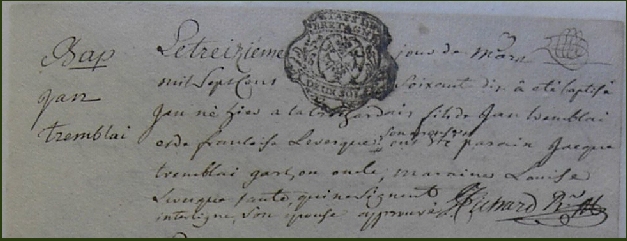 Bap
jan
tremblai
Le treizieme jour de mars
mil sept cens soixant dix a été baptisé
jan né hier a la hardais fils de jan tremblai
et de francoise Levesque son epouse ont été parain jacque
tremblai garçon oncle, maraine Louise
Levesque tante, qui ne signent
interligne, son epouse approuvé
ETATS DE
BRETAGNE
DEUX SOLS